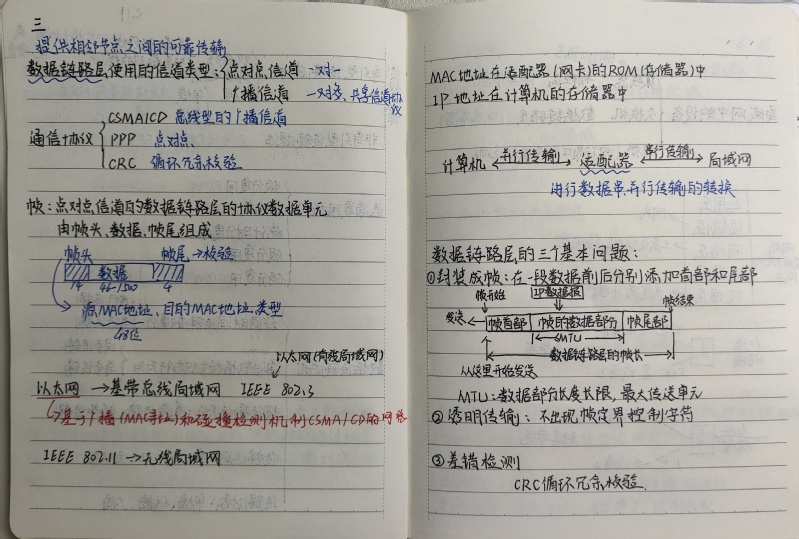 三
提供相邻节点之间的可靠传输
数据链路层使用的信道类型：点对点信道 一对一
广播信道 一对多、共享信道协议
通信协议
CSMA/CD 总线型的广播信道
PPP 点对点
CRC 循环冗余校验
帧：点对点信道的数据链路层的协议数据单元
由帧头、数据、帧尾组成
帧头 帧尾→校验
数据
14 46-1500 4
源MAC地址、目的MAC地址、类型
48位
以太网(有线局域网)
以太网→基带总线局域网 IEEE 802.3
基于广播(MAC寻址)和碰撞检测机制CSMA/CD的网络
IEEE 802.11→无线局域网
MAC地址在适配器(网卡)的ROM(存储器)中
IP地址在计算机的存储器中
计算机 并行传输 适配器 串行传输 局域网
进行数据串、并行传输的转换
数据链路层的三个基本问题：
①封装成帧：在一段数据前后分别添加首部和尾部
帧开始 IP数据报 帧结束
发送 帧首部 帧的数据部分 帧尾部
MTU
数据链路层的帧长
从这里开始发送
MTU：数据部分长度上限，最大传送单元
②透明传输：不出现帧定界控制字符
③差错检测
CRC循环冗余校验